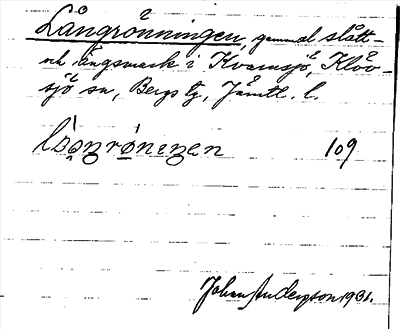 Långrönningen, gammal slått-
och ängsmark i Kvarnsjö, Klöv-
sjö sn, Bergs tg, Jämtl. l.
lsåŋrö̀neŋen 109
Johan Anderson 1931.